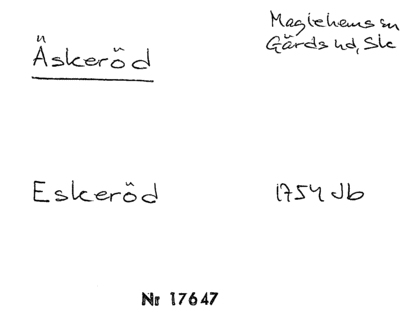 Äskeröd
Maglehems sn
Gärds hd, Sk
Eskeröd
1754 Jb
Nr 17647